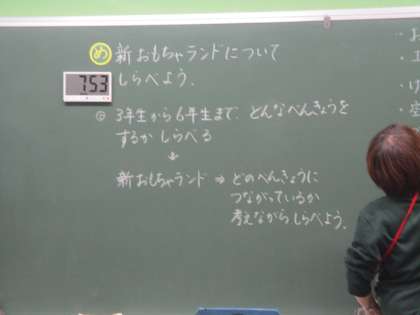 め 新おもちゃランドについて
しらべよう.
753
◎ 3年生から6年生まで、どんなべんきょうを
するか しらべる
↓
新おもちゃランド ⇒ どのべんきょうに
つながっているか
考えながらしらべよう.